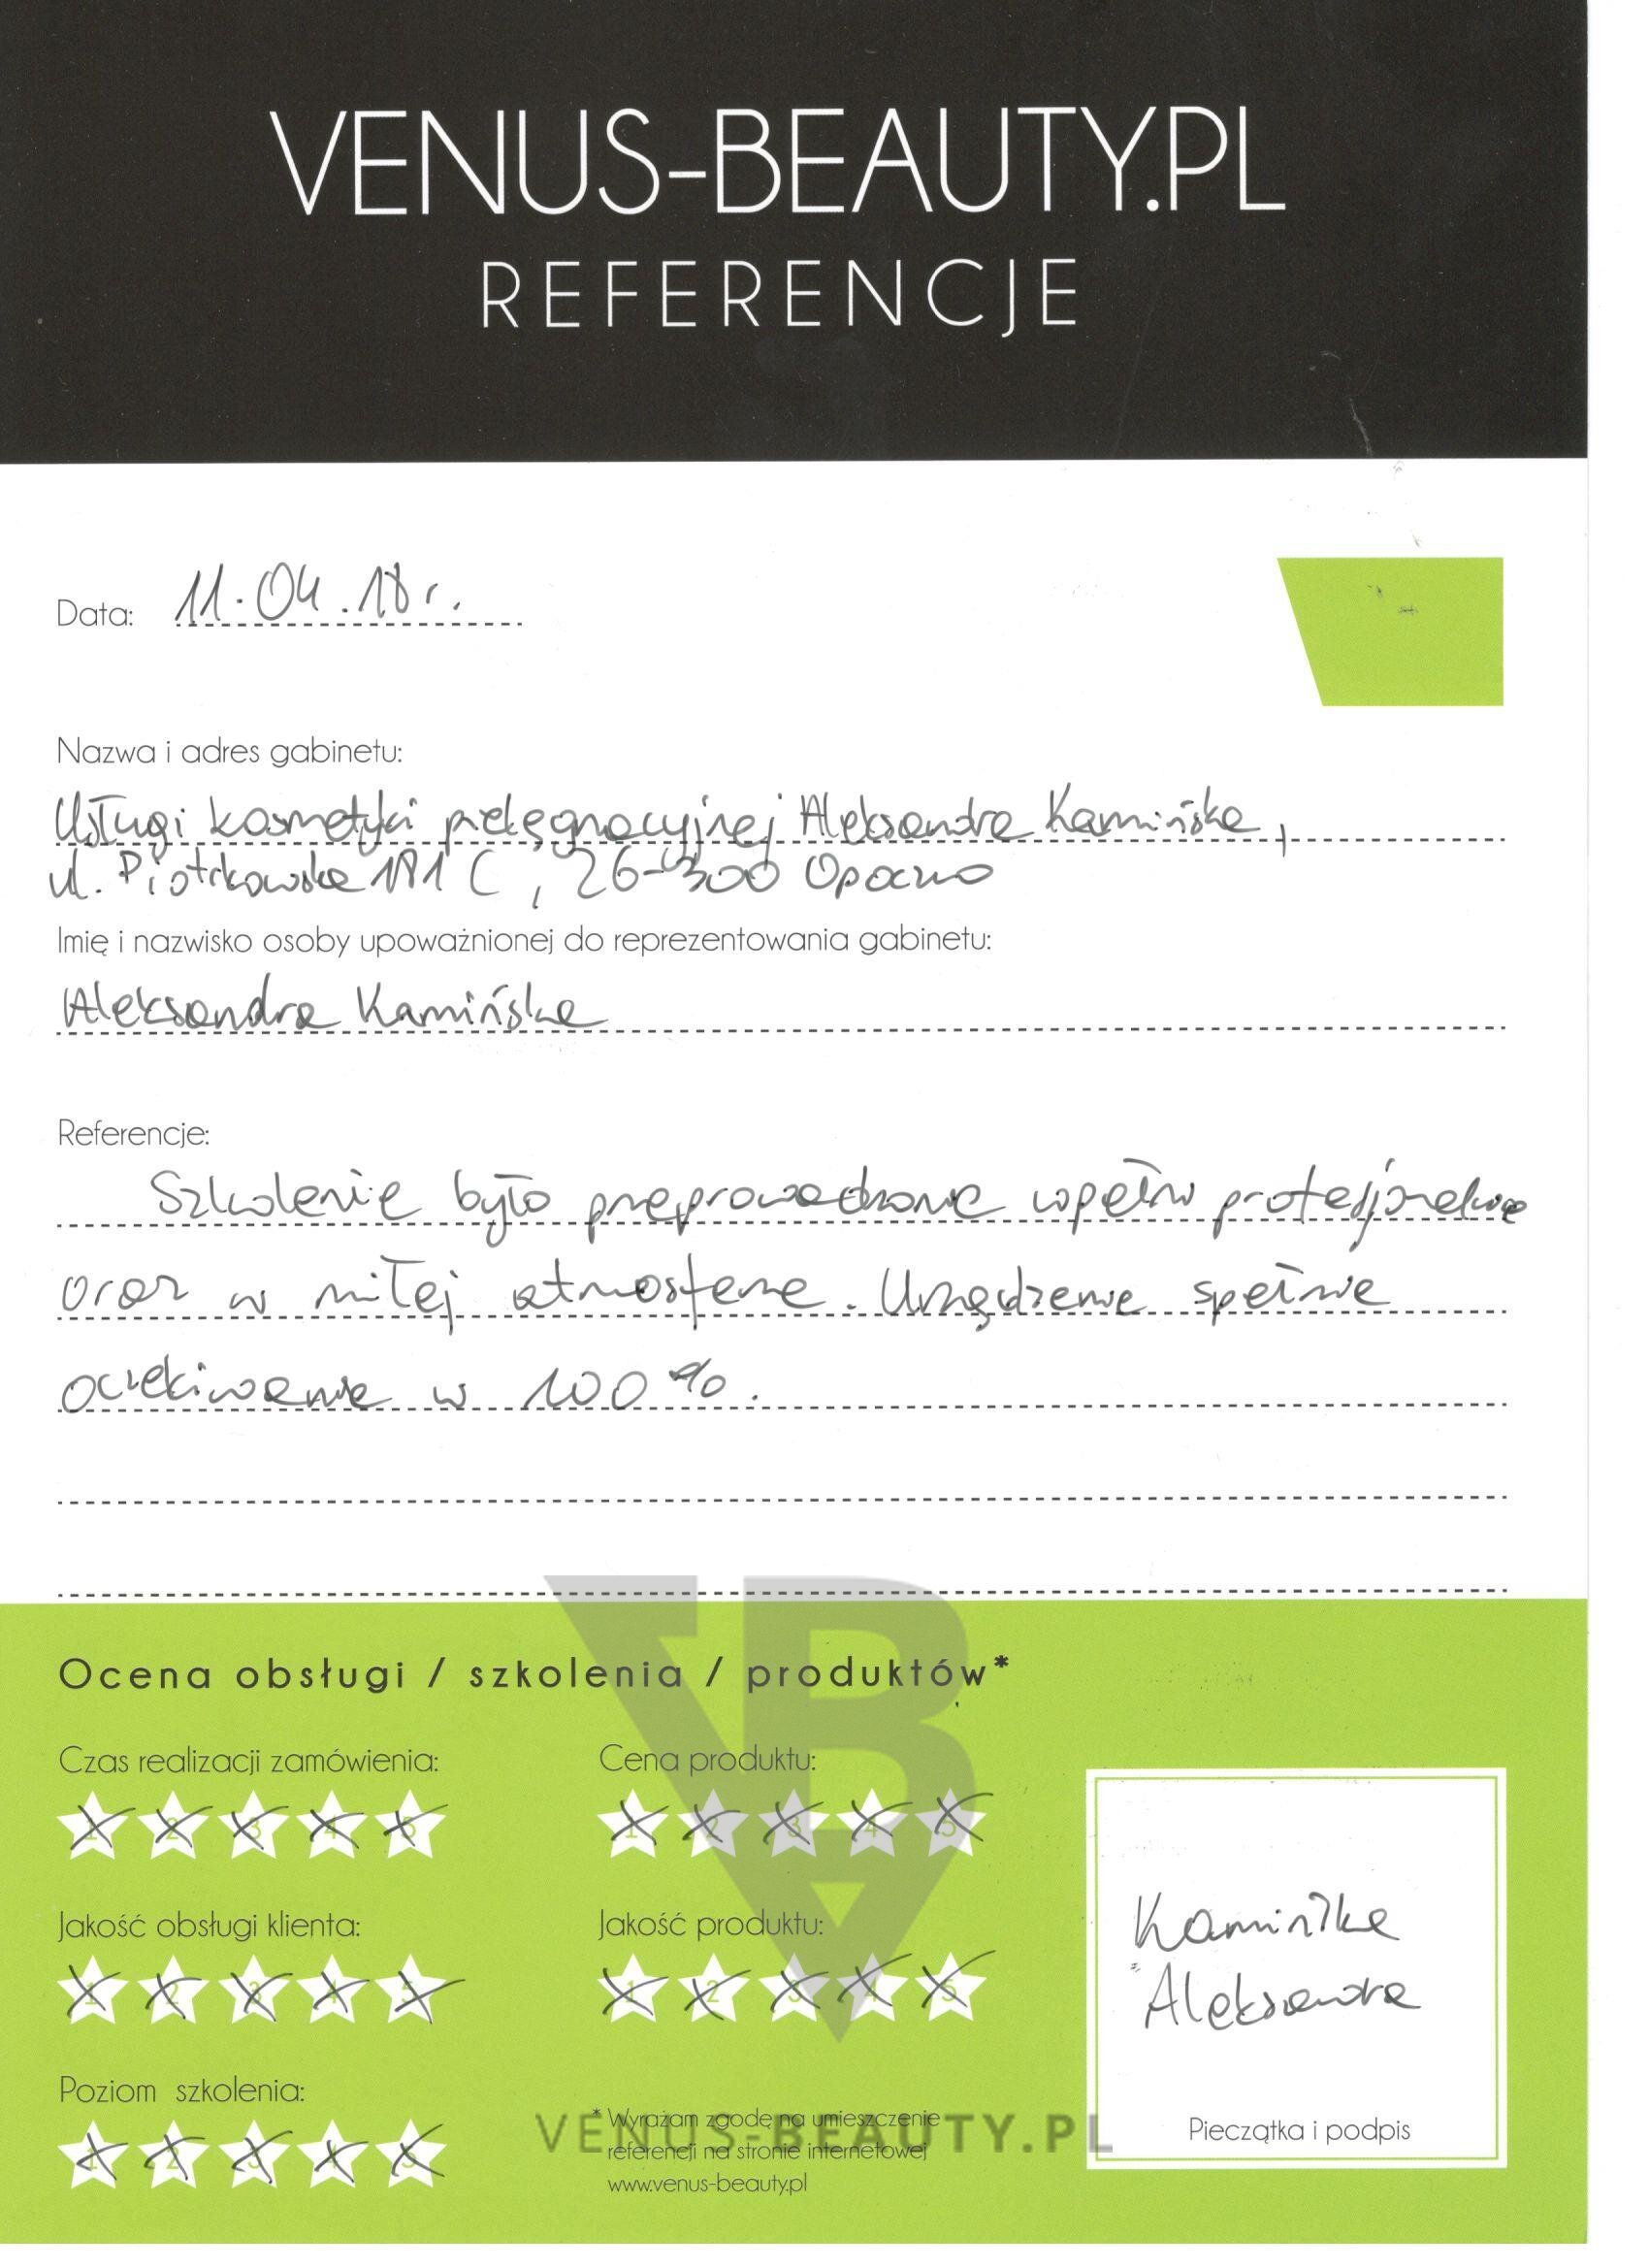 VENUS-BEAUTY.PL
REFERENCJE
Data: 11.04.18 r.
Nazwa i adres gabinetu:
Usługi kosmetyki pielęgnacyjnej Aleksandra Kamińska,
ul. Piotrkowska 181 C, 26-300 Opoczno
Imię i nazwisko osoby upoważnionej do reprezentowania gabinetu:
Aleksandra Kamińska
Referencje:
Szkolenie było przeprowadzone w pełni profesjonalnie
oraz w miłej atmosferze. Urządzenie spełnia
oczekiwania w 100 %.
Ocena obsługi / szkolenia / produktów*
Czas realizacji zamówienia:
1 2 3 4 5
Cena produktu:
1 2 3 4 5
Jakość obsługi klienta:
1 2 3 4 5
Jakość produktu:
1 2 3 4 5
Poziom szkolenia:
1 2 3 4 5
* Wyrażam zgodę na umieszczenie
referencji na stronie internetowej
www.venus-beauty.pl
VENUS-BEAUTY.PL
Kamińska
Aleksandra
Pieczątka i podpis